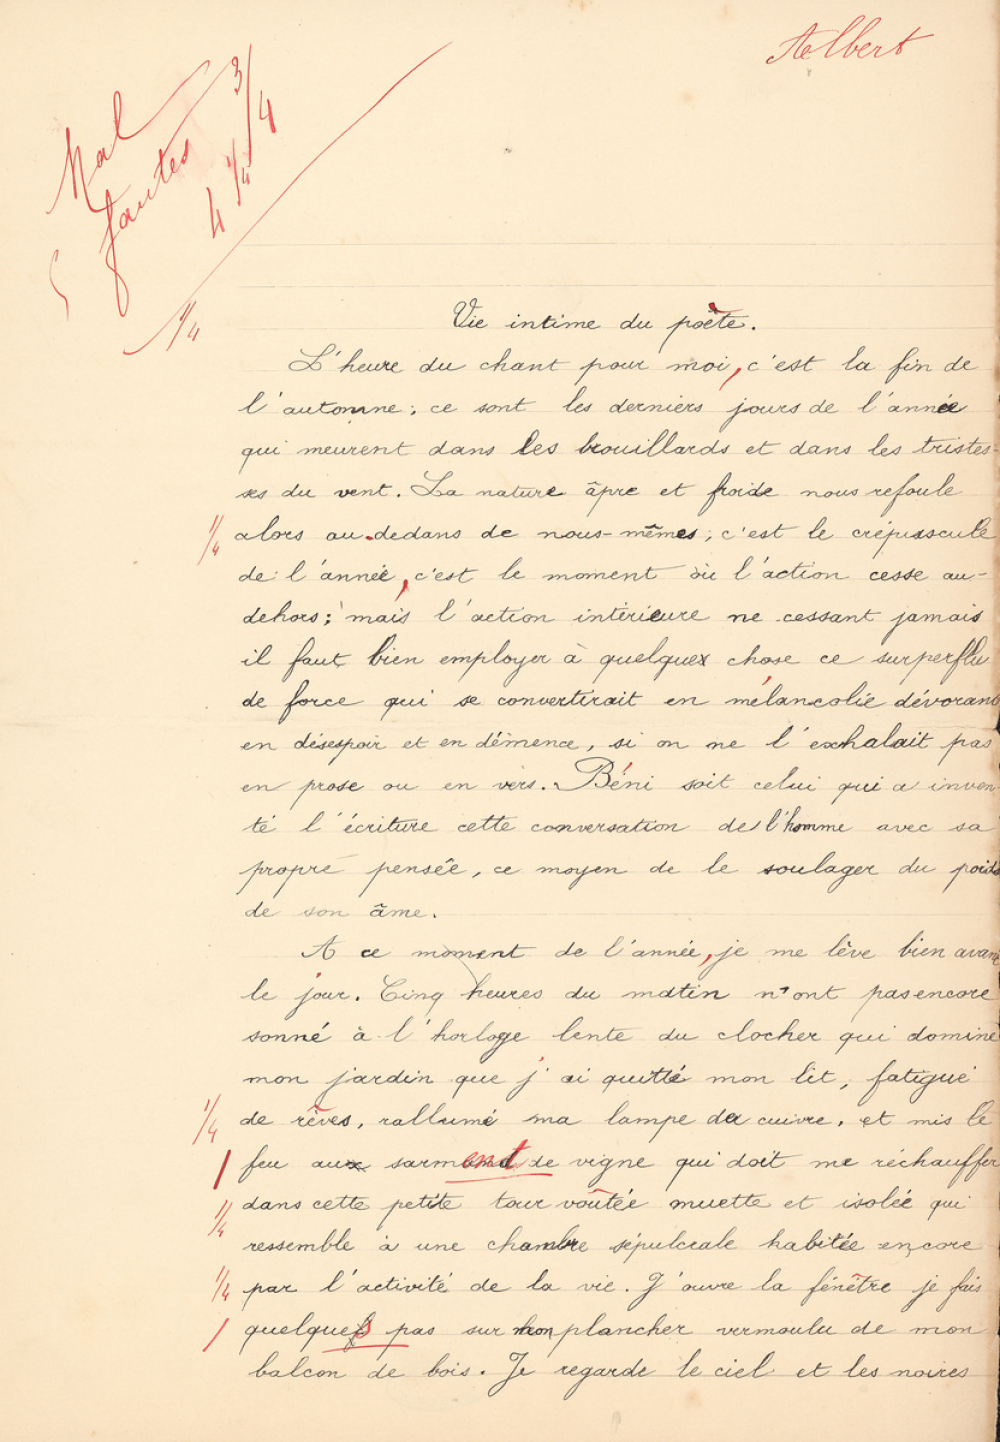 Aelbert
Mal
5 fautes 3/4
4 1/4
1/4
Vie intime du poète.
L'heure du chant pour moi, c'est la fin de
l'automne ; ce sont les derniers jours de l'année
qui meurent dans les brouillards et dans les tristes-
ses du vent. La nature âpre et froide nous refoule
1/4 alors au-dedans de nous-mêmes ; c'est le crépusscule
de l'année, c'est le moment où l'action cesse au-
dehors ; mais l'action intérieure ne cessant jamais
il faut bien employer à quelque chose ce surperflu
de force qui se convertirait en mélancolie dévorant
en désespoir et en démence, si on ne l'exhalait pas
en prose ou en vers. Béni soit celui qui a inven-
té l'écriture cette conversation de l'homme avec sa
propre pensée, ce moyen de le soulager du poids
de son âme.
A ce moment de l'année, je me lève bien avant
le jour. Cinq heures du matin n'ont pas encore
sonné à l'horloge lente du clocher qui domine
mon jardin que j'ai quitté mon lit, fatigué
1/4 de rêves, rallumé ma lampe de cuivre, et mis le
1 feu au sarment de vigne qui doit me réchauffer
1/4 dans cette petite tour voûtée muette et isolée qui
ressemble à une chambre sépulcrale habitée encore
1/4 par l'activité de la vie. J'ouvre la fénêtre je fais
1 quelques pas sur mon plancher vermoulu de mon
balcon de bois. Je regarde le ciel et les noires